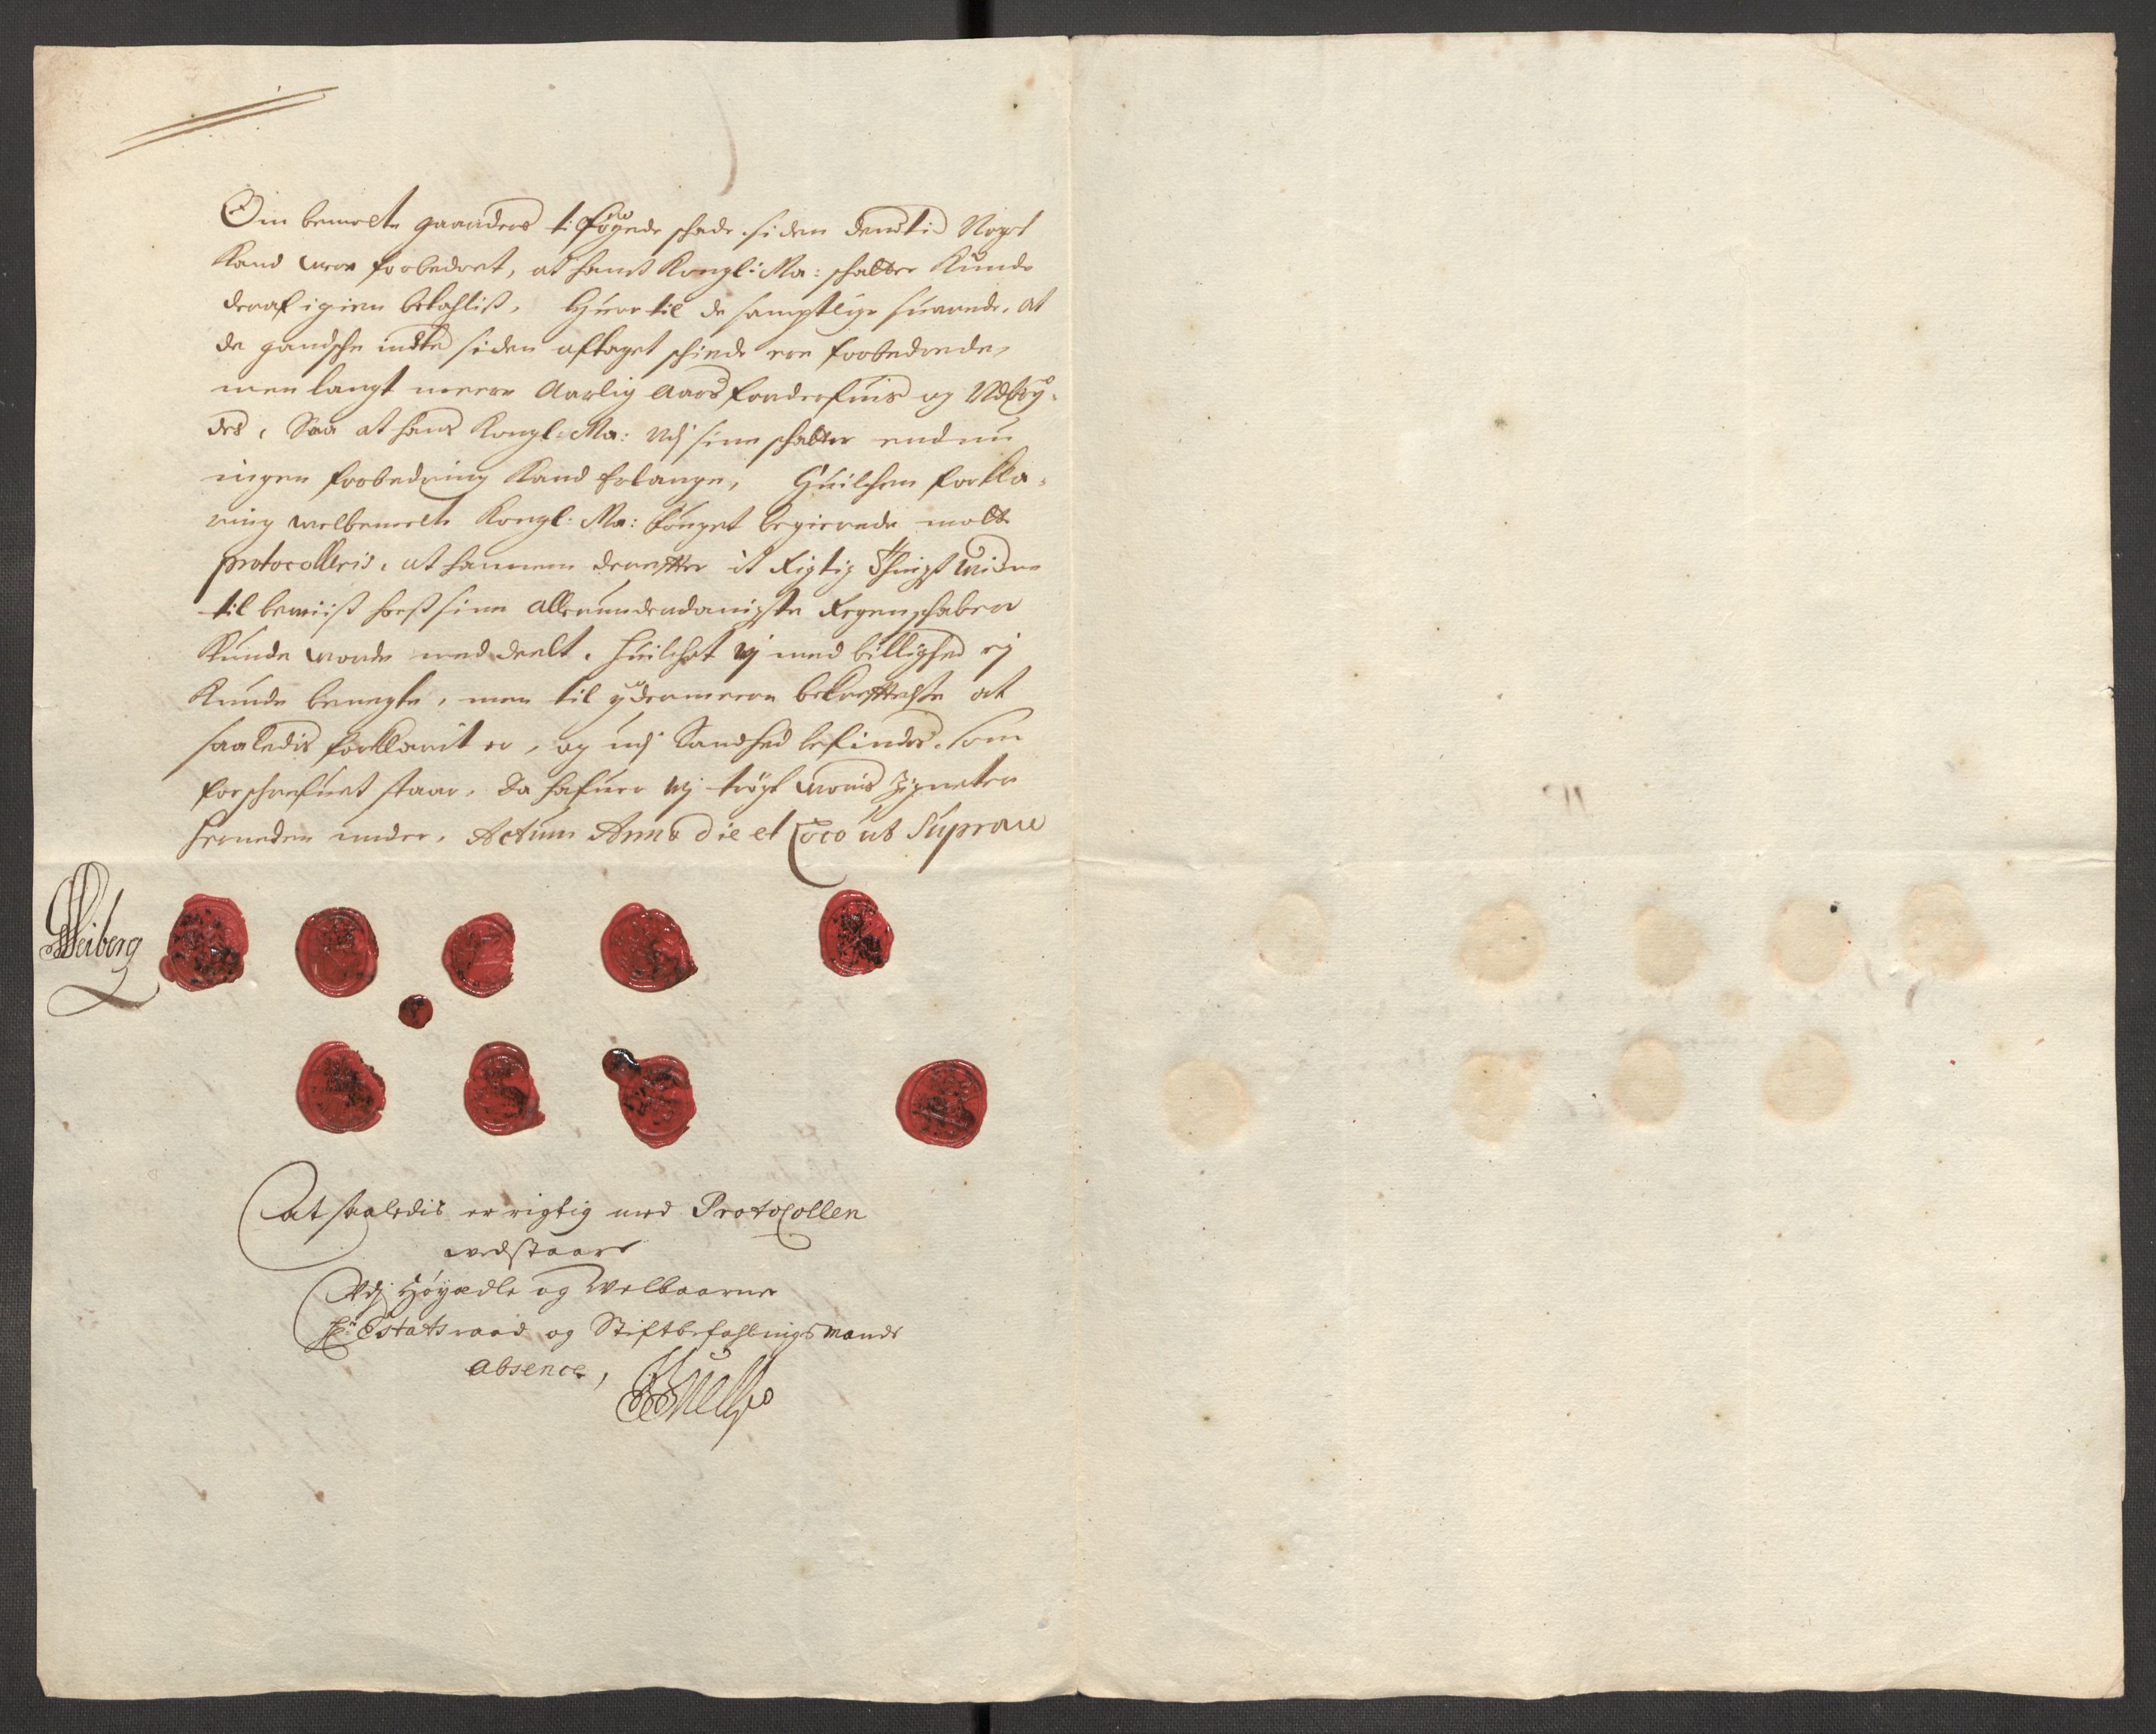 Om bemelte gaarders tilføyede schade siden den tid Noget
Kand were forbedret, at hans Kongl: Ma: schatter Kunde
deraf igien betahliß, Huortil de samptlige suarede, at
de gandsche indtet siden aftaget schiede ere forbedrede,
men langt meere Aarlig Aars forderfuis og Udsty-
des, Saa at hans Kongl: Ma: Udj sine schatter endnu
ingen forbedring Kand erlange, Huilchen forkla-
ring welbemelte Kongl: Ma: fouget begierede motte
protocolleris, at hannem derefter it Rigtig Thingß widne
til beviiß hoeß sine allerunderdanigste Regenschaber
Kunde worde meddeelt, huilchet wj med billighed ej
Kunde benegte, men til ydermeere bekrefftelse at
saaledis forklarit er, og udj Sandhed befindes, som
forschrefuet staar, Da hafuer wj trögt woris Zigneter
herneden under, Actum Anno die et Loco ut Supra
Weiborg
at saaledis er rigtig med Protocollen
vedstaar
Udj Høyædle og Welbaarne
Hr: Estatsraad og Stiftbefahlings Mands
absence,